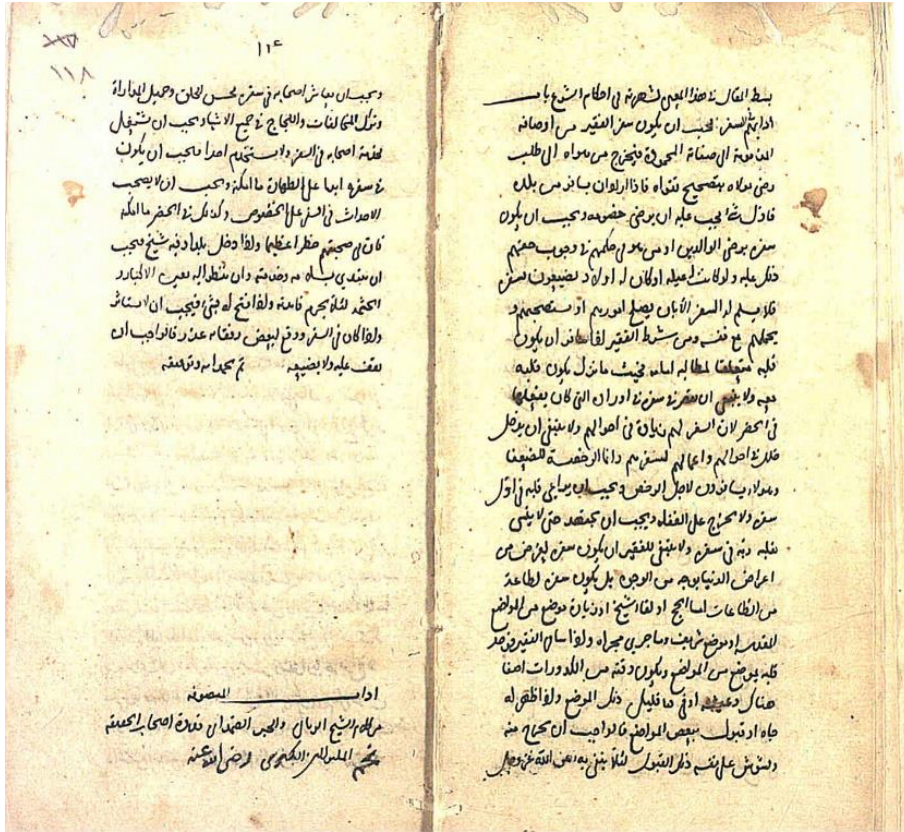 بسط القال في هذا المعنى لشهرته في احكام الشرع باب
آدابهم السفر يجب ان يكون سفر الفقير من اوصافه
المذمومة الى صفاته المحمودة فيخرج من هواه الى طلب
رضى مولاه بتصحيح تقواه فاذا اراد ان يسافر من بلده
فاول شئ يجب عليه ان يرضى خصومه ويجب ان يكون
سفره برضى الوالدين او من هو في حكمهم في وجوب حقهم
ذلك عليه ولو كانت له عيله او كان له اولاد يضيعون بسفره
فلا يسلم له السفر الا بان يصلح امورهم او يستصحبهم و
يحملهم مع نفسه ومن شرط الفقير اذا سافر ان يكون
قلبه متعلقا لمطالبه امامه فحيث ما نزل يكون قلبه
معه ولا ينبغي ان يقصر في سفره في اوراده التي كان يفعلها
في الحضر لان السفر لهم زيادة في احوالهم ولا ينبغي ان يدخل
خلل في احوالهم واعمالهم لسفرهم وانما الرخصة للضعفا
وهولاء يسافرون لاجل الرخص ويجب ان يراعي قلبه في اول
سفره ولا يخرج على الغفله ويجب ان يجتهد حتى لا ينسى
بقلبه ربه في سفره ولا ينبغي للفقير ان يكون سفره لغرض من
اعراض الدنيا بوجه من الوجوه بل يكون سفره لطاعة
من الطاعات اما الحج او لقا الشيخ او زيارة موضع من المواضع
المقدسه او موضع شريف وما جرى مجراه واذا سافر الفقير فوجد
قلبه بموضع من المواضع ويكون وقته من الكدورات اصفا
هناك ذلك الموضع واذا ظهر له
جاه او قبول ببعض المواضع فالواجب ان يخرج منه
ويشوش على نفسه ذلك القبول لئلا يبقى به عن الله عز وجل
١١٤
١١٨
ويجب ان يعاشر اصحابه في سفره بحسن الخلق وجميل المداراة
وترك المخالفات واللجاج في جميع الاشياء ويجب ان يشتغل
بخدمة اصحابه في السفر ولا يستخدم احدا ويجب ان يكون
في سفره ابدا على الطهارة ما امكنه ويجب ان لا يصحب
الاحداث في السفر على الخصوص وكذلك في الحضر ما امكنه
فان في صحبتهم خطرا عظيما واذا دخل بلدا وفيه شيخ فيجب
ان يبتدي بسلامه وخدمته وان ينظر اليه بعين الاكبار و
الحشمة لئلا يحرم فائدته واذا فتح له بشئ فيجب ان لا يستأثر
واذا كان في السفر ووقع لبعض رفقائه عذر فالواجب ان
يقف عليه ولا يضيعه تم بحمد الله وتوفيقه
اداب المتصوفه
من كلام الشيخ الرباني والحبر الصمداني قدوة اصحاب الحقيقه
نجم الملة الكبرى رضي الله عنه